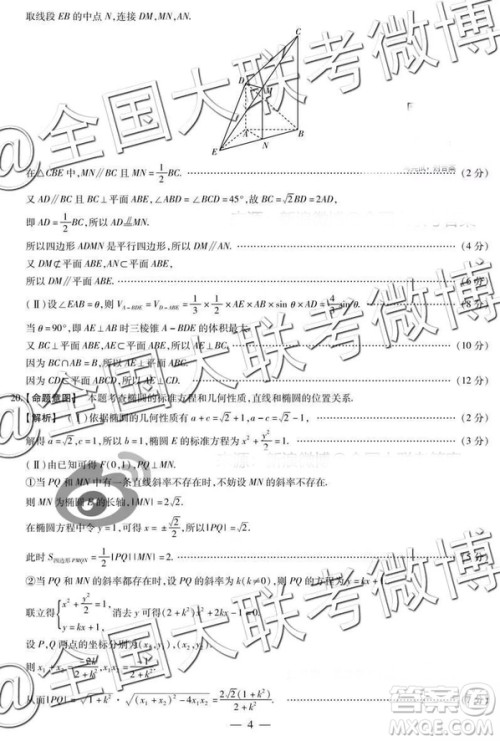 取线段 EB 的中点 N,连接 DM,MN,AN.
C
D
M
A
B
E
N
在△CBE 中,MN∥BC 且 MN=1/2BC. (2 分)
又 AD∥BC 且 BC⊥平面 ABE,∠ABD=∠CBD=45°,故 BC=√2BD=2AD,
即 AD=1/2BC,所以
所以四边形 ADMN 是平行四边形,所以 DM∥AN. (4 分)
又 DM⊄平面 ABE,AN⊂平面 ABE,
所以 DM∥平面 ABE. (6 分)
(Ⅱ)设∠EAB=θ,则 V_{A-BDE}=V_{B-ADE}=1/3×1/2×AE×AB×sin θ×AD= (8 分)
当 θ=90°,即 AE⊥AB 时三棱锥 A-BDE 的体积最大.
又 BC⊥平面 ABE,AE⊂平面 ABE,所以 AE⊥BC. (10 分)
因为 BC∩AB=B,所以 AE⊥平面 ABC.
因为 CD⊂平面 ABC,所以 AE⊥CD. (12 分)
20.【命题意图】 本题考查椭圆的标准方程和几何性质,直线与椭圆的位置关系.
【解析】 (Ⅰ)由椭圆的几何性质可知 a+c=√2+1,a-c=√2-1, (2 分)
解得 a=√2,c=1,所以 b=1,所以椭圆 E 的标准方程为 x²+y²/2=1. (4 分)
(Ⅱ)由已知可得 F(0,1),PQ⊥MN.
①当 PQ,MN 中有一条直线斜率不存在时,不妨设 MN 的斜率不存在,
则 MN 为椭圆 E 的长轴,|MN|=2√2.
在椭圆方程中令 y=1,可得 x=±√2/2,所以|PQ|=√2.
此时 S_{四边形PMQN}=1/2|PQ||MN|=2.
②当 PQ,MN 的斜率都存在时,设 PQ 的斜率为 k(k≠0),则 PQ 的方程为 y=kx+1.
联立得{x²+y²/2=1, y=kx+1, 消去 y 可得(2+k²)x²+2kx-1=0.
设 P,Q 两点的坐标分别为
则 x₁+x₂=-2k/(2+k²),x₁x₂=
从而|PQ|=√(1+k²)·√((x₁+x₂)²-4x₁x₂)=2√2(1+k²)/(2+k²).
— 4 —
@全国大联考微博
@全国大联考微博
@全国大联考微博
答案圈
MXQE.COM